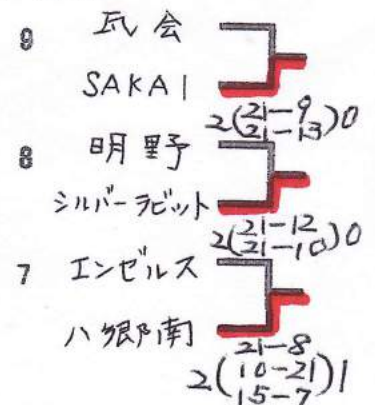 9 瓦会
SAKAI
2(21-9 21-13)0
8 明野
シルバーラビット
2(21-12 21-10)0
7 エンゼルス
八郷南
2(21-8 10-21 15-7)1